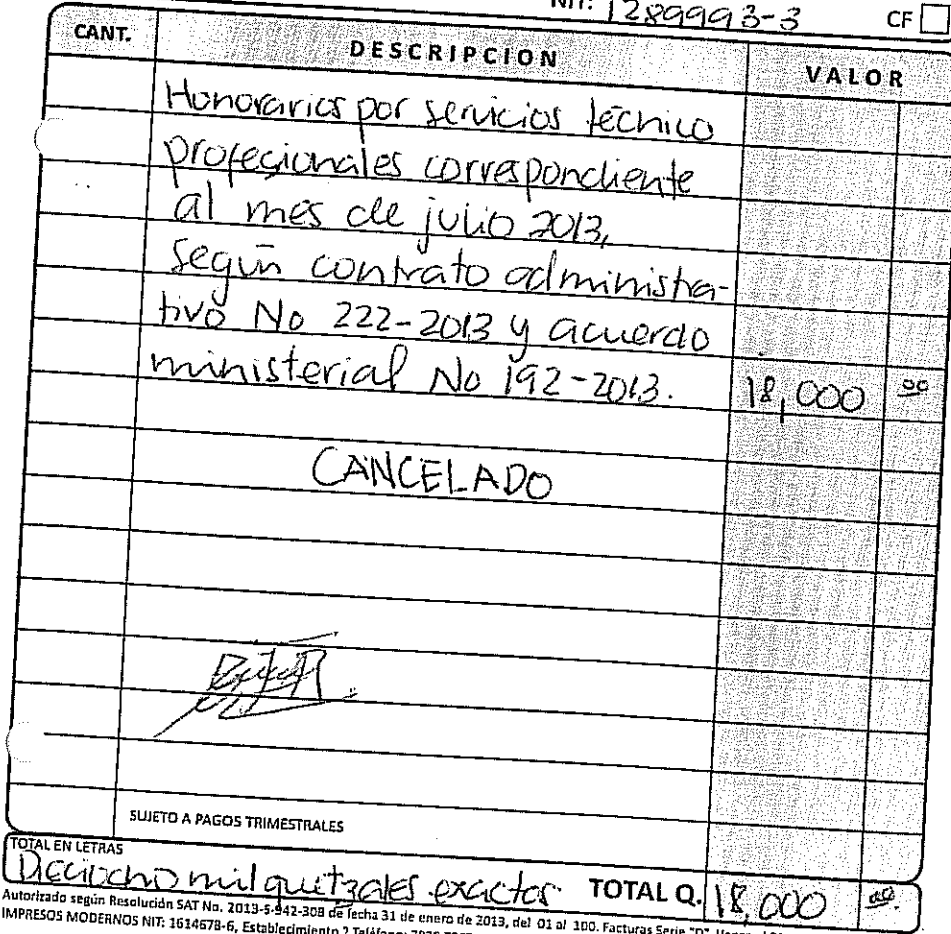 NIT: 1289993-3 CF
CANT. DESCRIPCION VALOR
Honorarios por servicios técnico
profesionales correspondiente
al mes de julio 2013,
según contrato administra-
tivo No 222-2013 y acuerdo
ministerial No 192-2013. 18,000 00
CANCELADO
SUJETO A PAGOS TRIMESTRALES
TOTAL EN LETRAS
Dieciocho mil quetzales exactos TOTAL Q. 18,000 00
Autorizado según Resolución SAT No. 2013-5-942-308 de fecha 31 de enero de 2013, del 01 al 100. Facturas Serie "D"
IMPRESOS MODERNOS NIT: 1614678-6, Establecimiento 2 Teléfono: